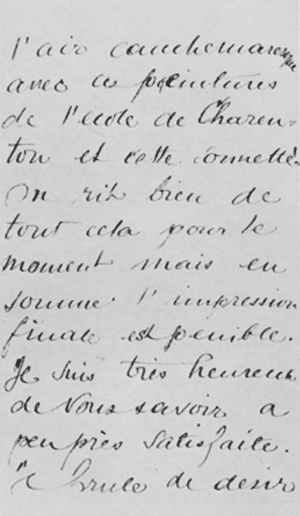 l'air cauchemaresque
avec ces peintures
de l'école de Charen-
ton et cette
on rit bien de
tout cela pour le
moment mais en
somme l'impression
finale est penible.
Je suis très heureux
de vous savoir a
peu près satisfaite.
Je brule de désir